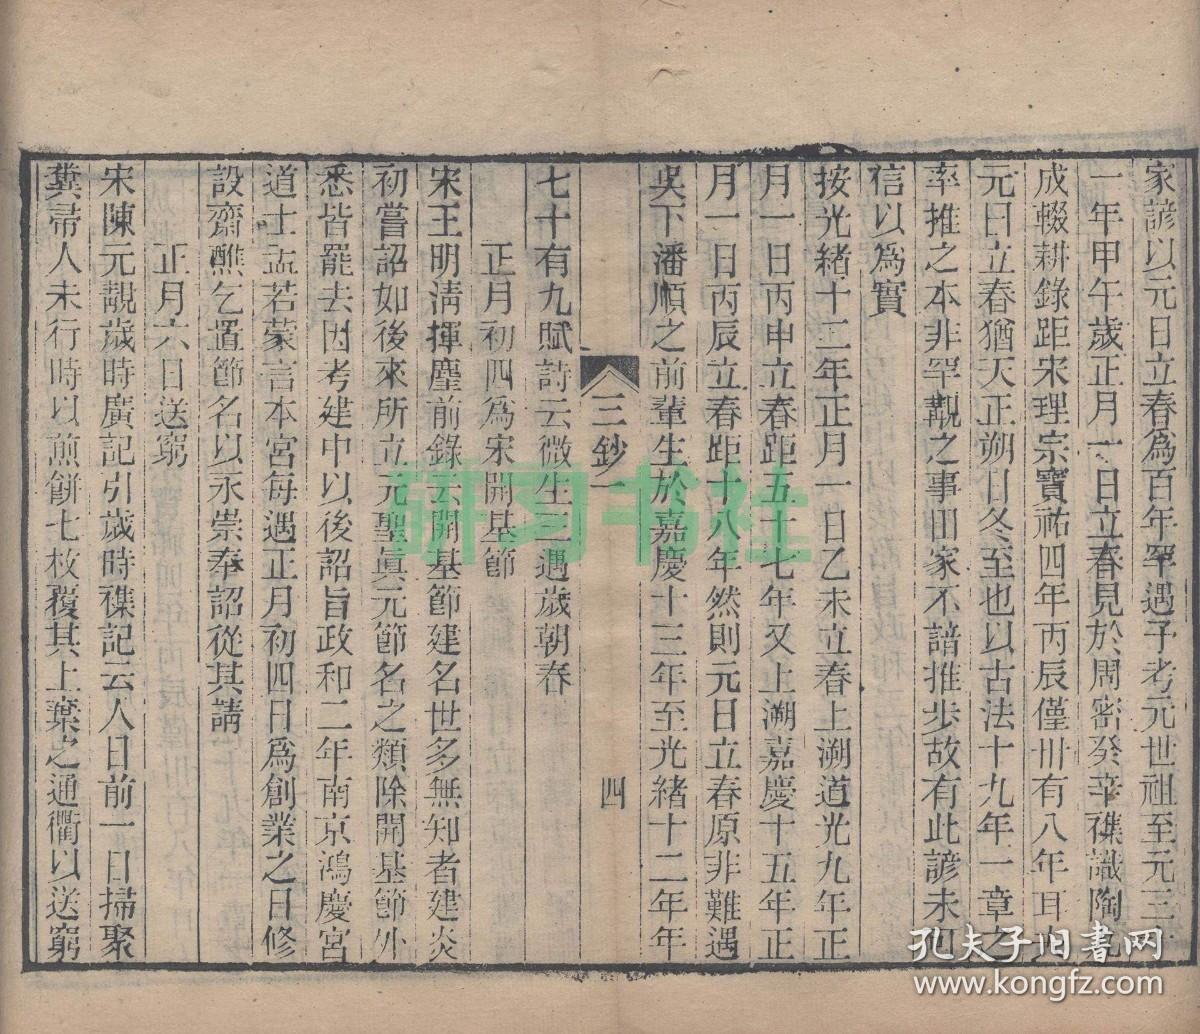 家諺以元日立春爲百年罕遇予考元世祖至元三十
一年甲午歲正月一日立春見於周密癸辛襍識陶九
成輟耕錄距宋理宗寶祐四年丙辰僅卅有八年耳
元日立春猶天正朔日冬至也以古法十九年一章之
率推之本非罕覯之事田家不諳推步故有此諺未可
信以爲實
按光緒十二年正月一日乙未立春上溯道光九年正
月一日丙申立春距五十七年又上溯嘉慶十五年正
月一日丙辰立春距十八年然則元日立春原非難遇
吳下潘順之前輩生於嘉慶十三年至光緒十二年年
三鈔一
四
七十有九賦詩云微生三遇歲朝春
正月初四爲宋開基節
宋王明淸揮麈前錄云開基節建名世多無知者建炎
初嘗詔如後來所立元聖眞元節名之類除開基節外
悉皆罷去因考建中以後詔旨政和二年南京鴻慶宮
道士孟若蒙言本宮每遇正月初四日爲創業之日修
設齋醮乞置節名以永崇奉詔從其請
正月六日送窮
宋陳元靚歲時廣記引歲時襍記云人日前一日掃聚
糞帚人未行時以煎餅七枚覆其上棄之通衢以送窮
研习书社
孔夫子旧書网
www.kongfz.com